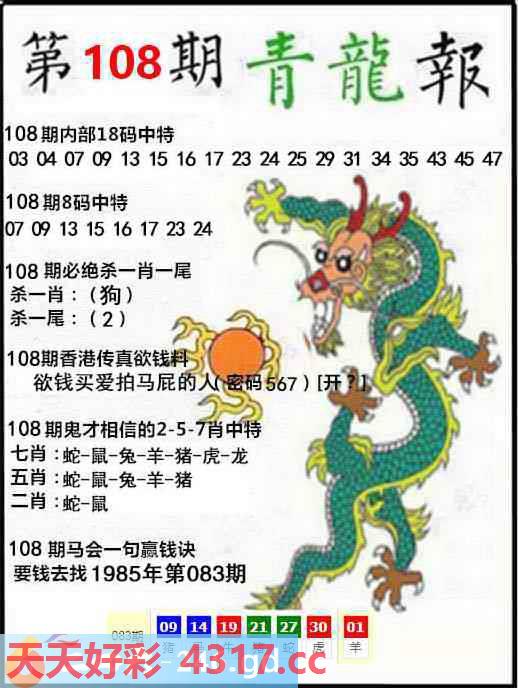 第108期青龍報
108期内部18码中特
03 04 07 09 13 15 16 17 23 24 25 29 31 34 35 43 45 47
108期8码中特
07 09 13 15 16 17 23 24
108 期必绝杀一肖一尾
杀一肖：（狗）
杀一尾：（2）
108期香港传真欲钱料
欲钱买爱拍马屁的人(密码567)[开?]
108期鬼才相信的2-5-7肖中特
七肖：蛇-鼠-兔-羊-猪-虎-龙
五肖：蛇-鼠-兔-羊-猪
二肖：蛇-鼠
108 期马会一句赢钱诀
要钱去找1985年第083期
083期 09 14 19 21 27 30 01
猪 牛 蛇 虎 羊
天天好彩 4317.cc